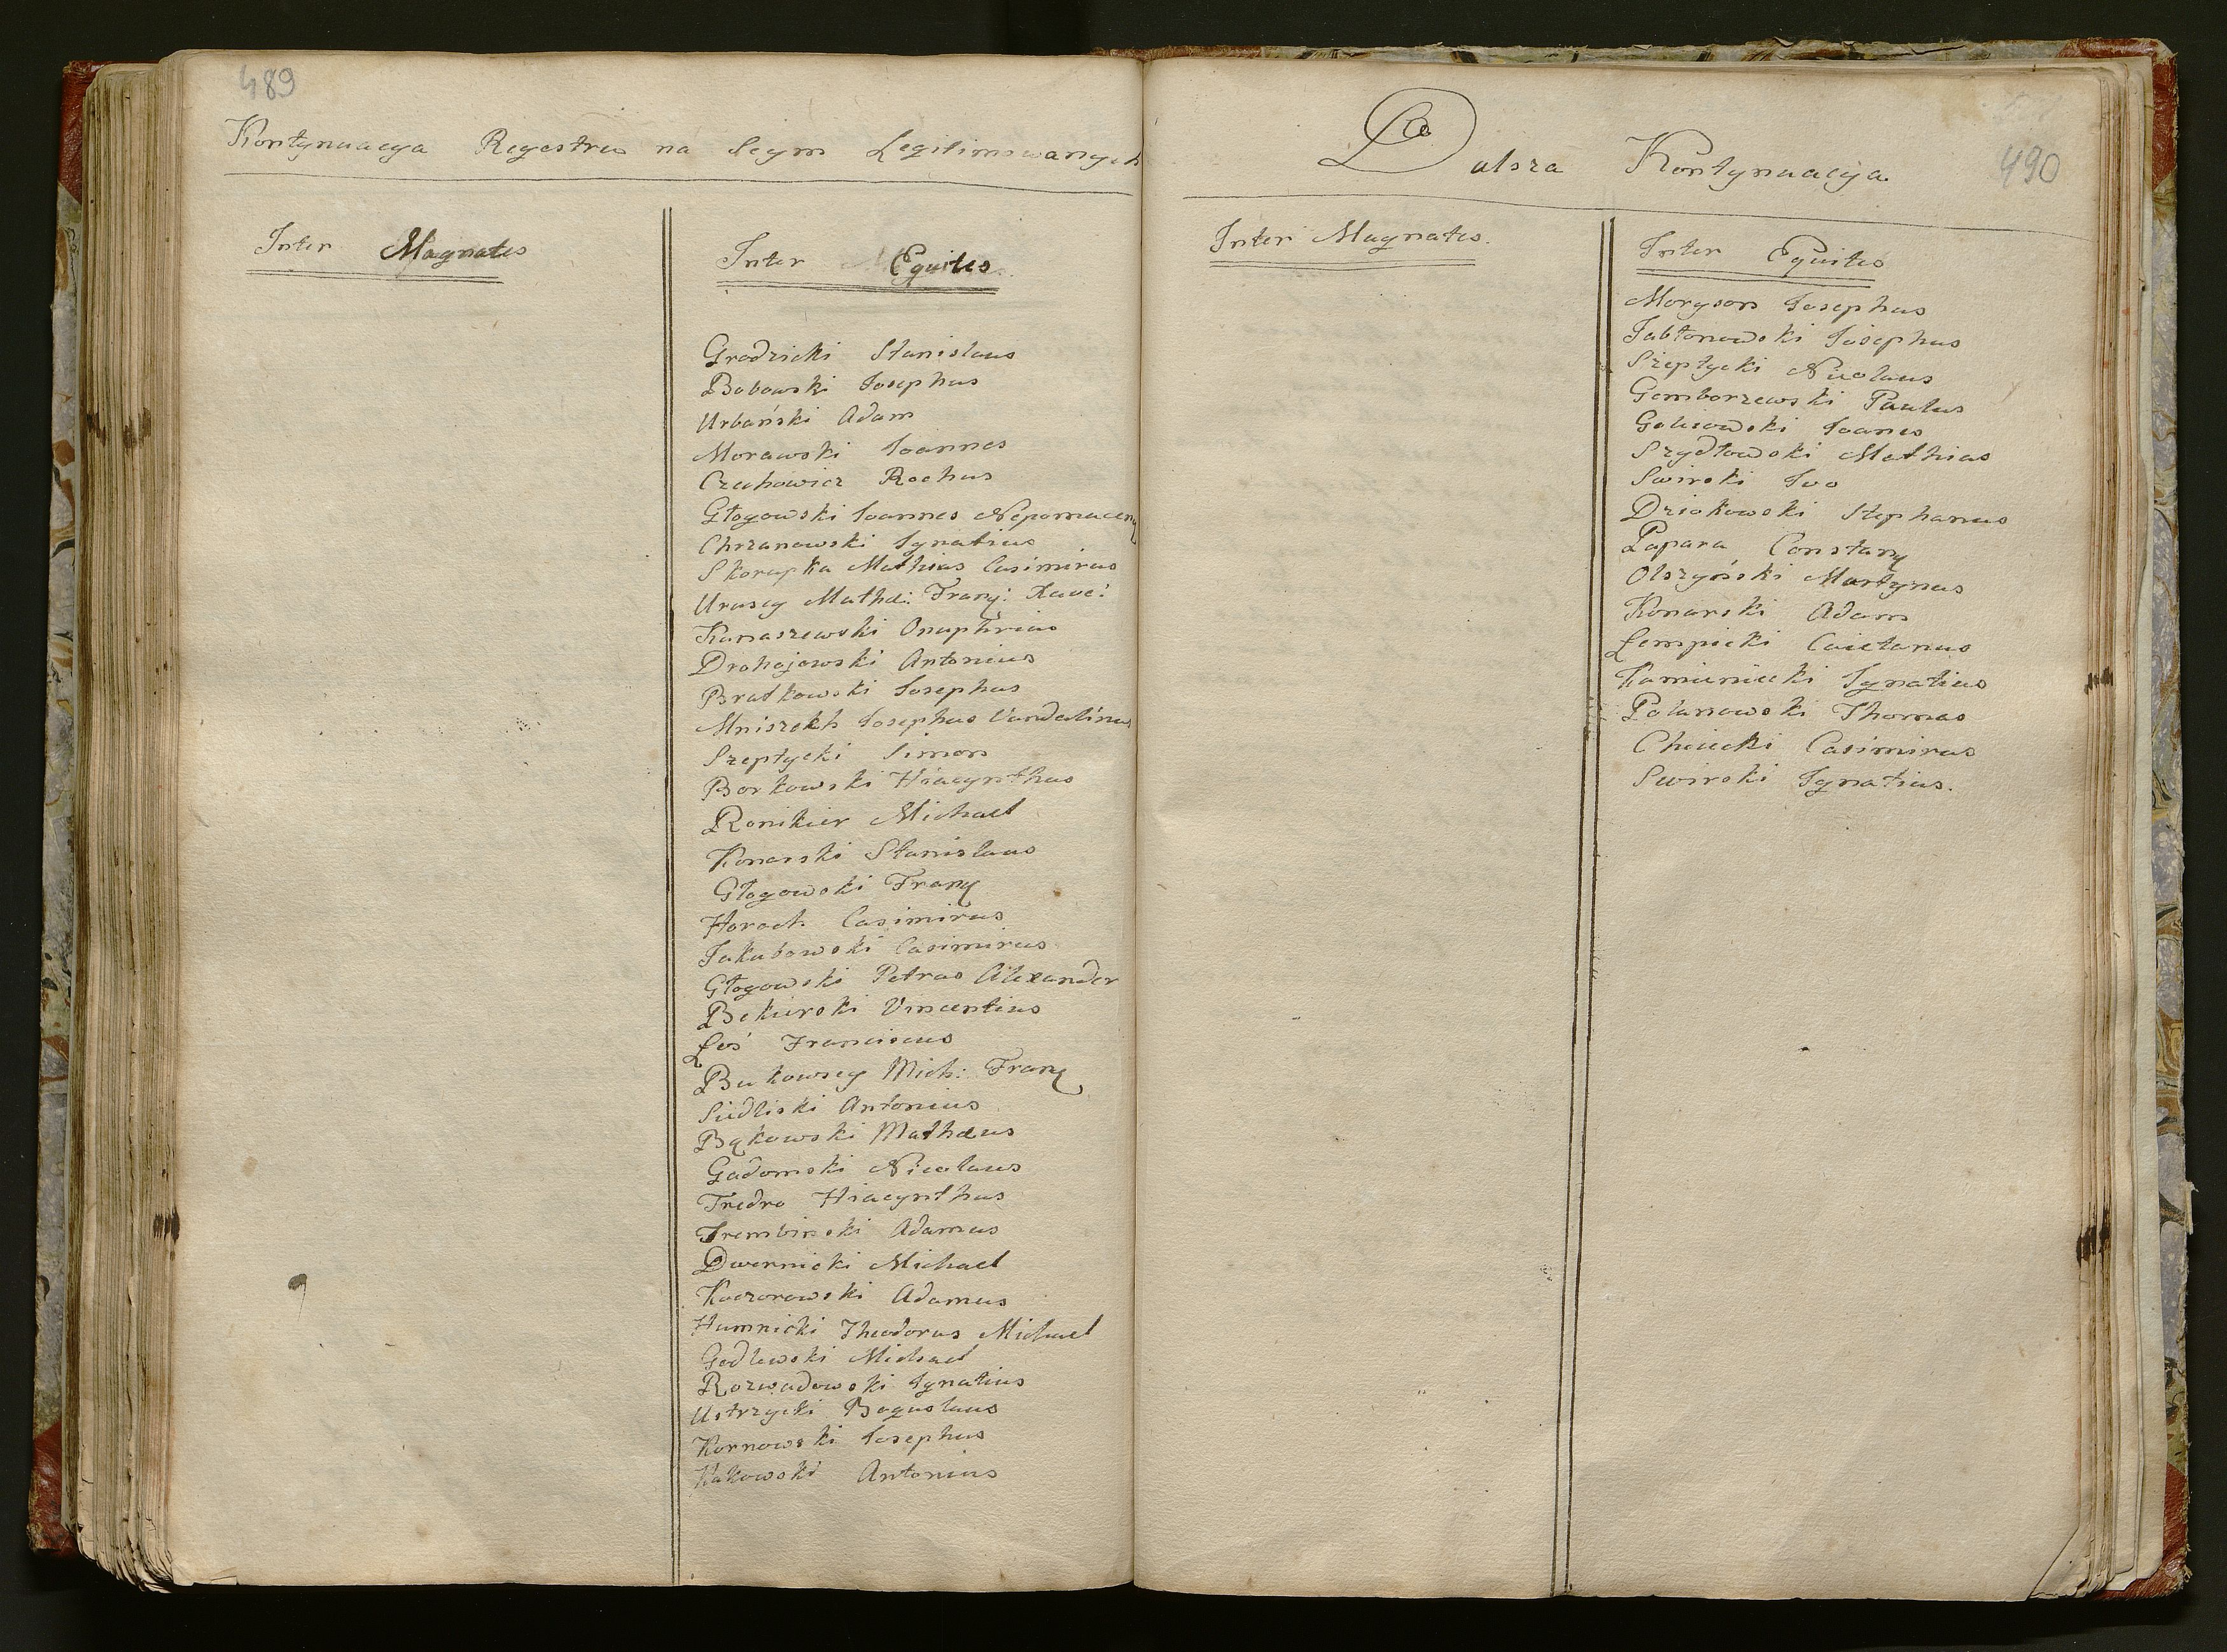 489
Kontynuacya Regestru na Seym Legitimowanych
Inter Magnates
Inter Equites
Grodzicki Stanislaus
Bobowski Josephus
Urbański Adam
Morawski Joannes
Czechowicz Rochus
Głogowski Joannes Nepomuceny
Chrzanowski Ignatius
Skorupka Mathias Casimirus
Uruscy Mathæ: Franç: Xave:
Kunaszewski Onuphrius
Drohojowski Antonius
Bratkowski Josephus
Mniszekh Josephus Vandalinus
Szeptycki Simon
Borkowski Hiacynthus
Ronikier Michael
Konarski Stanislaus
Głogowski Franç
Horoch Casimirus
Jakubowski Casimirus
Głogowski Petrus Alexander
Bekierski Vincentius
Łoś Franciscus
Bukowscy Mich: Franç
Siedliski Antonius
Bąkowski Mathæus
Gadomski Nicolaus
Fredro Hiacynthus
Trembinski Adamus
Dwernicki Michael
Kaczorowski Adamus
Humnicki Theodorus Michael
Godlewski Michael
Rozwadowski Ignatius
Ustrzycki Boguslaus
Kornowski Josephus
Kukowski Antonius
Dalsza Kontynuacya
490
Inter Magnates.
Inter Equites
Moryson Josephus
Jabłonowski Josephus
Szeptycki Nicolaus
Gomborzewski Paulus
Golieowski Joanes
Szydłowski Mathias
Swirski Ivo
Dziokowski Stephanus
Papara Constanç
Olszyński Martynus
Konarski Adam
Łempicki Caietanus
Kamieniecki Ignatius
Polanowski Thomas
Choiecki Casimirus
Swirski Ignatius.